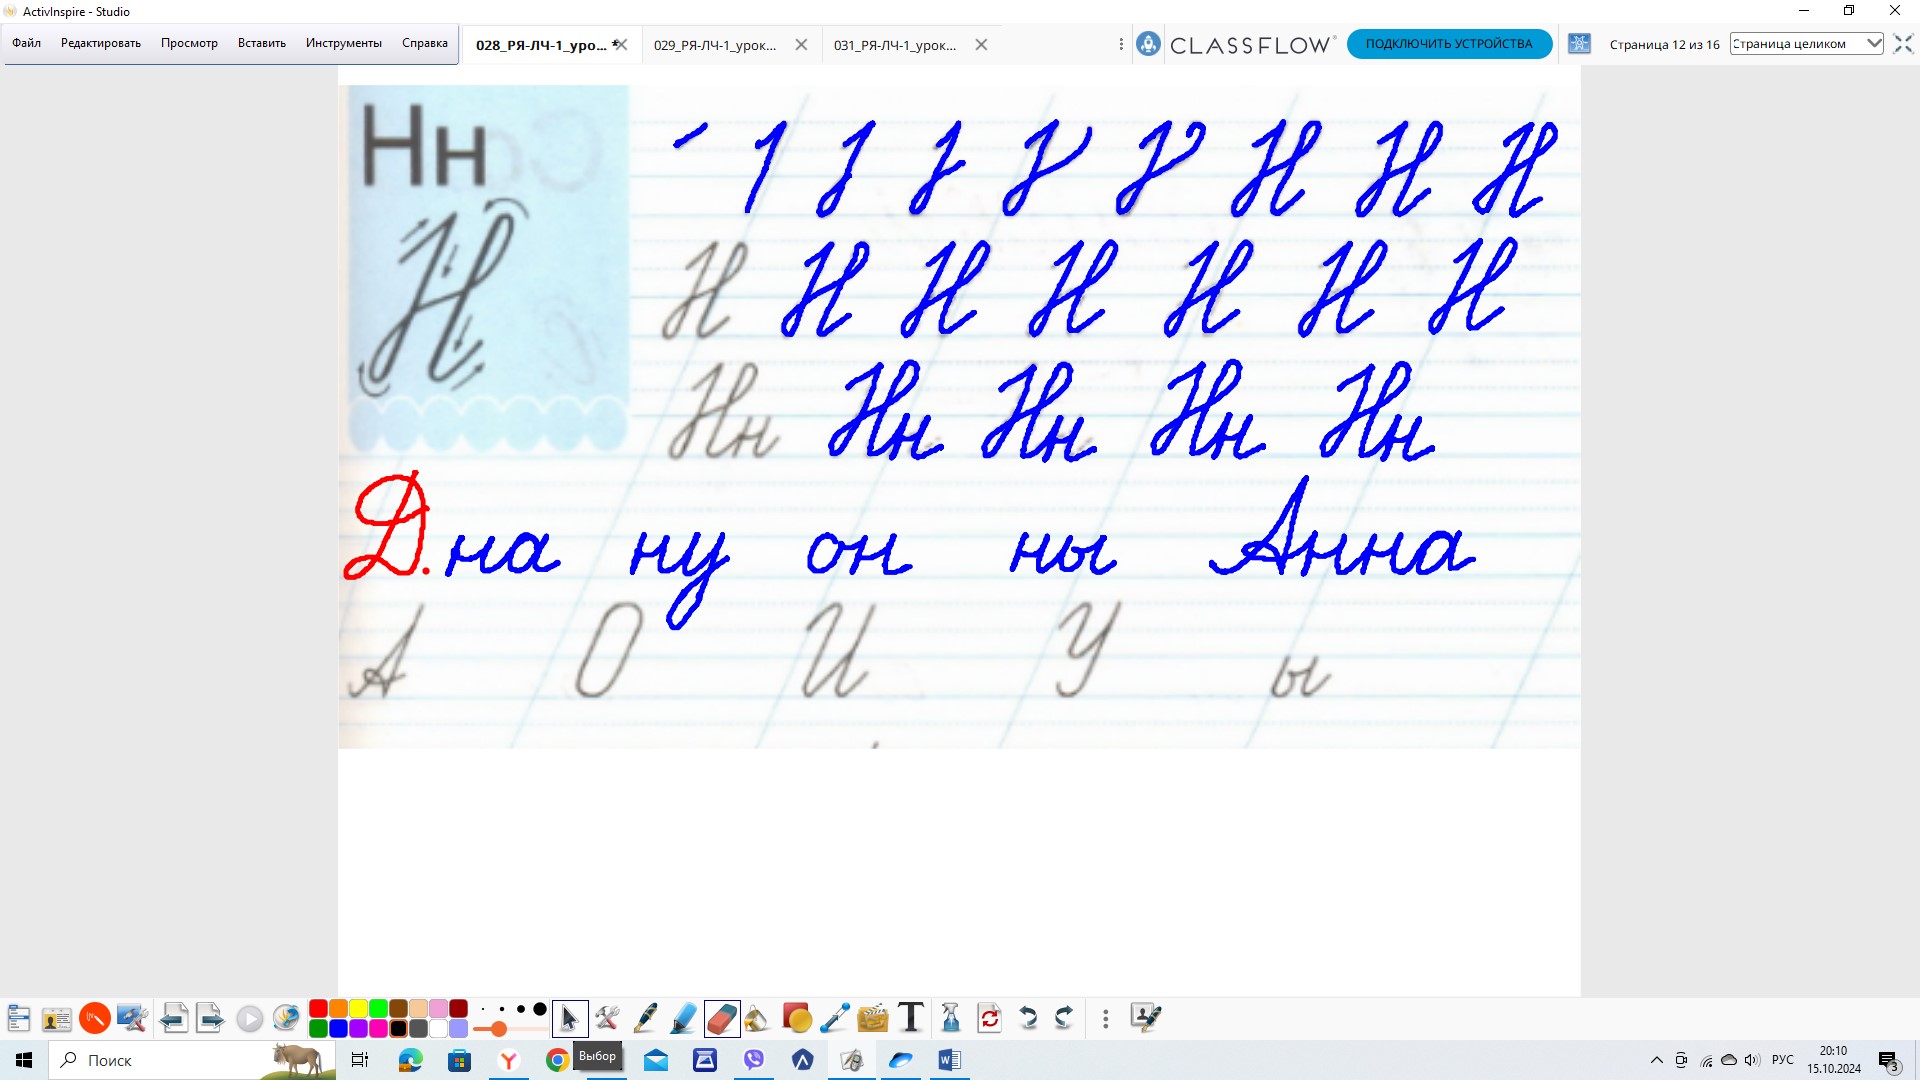 ActivInspire - Studio
Файл Редактировать Просмотр Вставить Инструменты Справка 028_РЯ-ЛЧ-1_уро... * 029_РЯ-ЛЧ-1_урок... 031_РЯ-ЛЧ-1_урок... CLASSFLOW ПОДКЛЮЧИТЬ УСТРОЙСТВА Страница 12 из 16 Страница целиком
Нн Н Н Н
Н Н Н Н Н Н Н Н
Нн Нн Нн Нн Нн
Д. на ну он ны Анна
А О И У ы
Выбор
Поиск РУС 20:10
15.10.2024 3